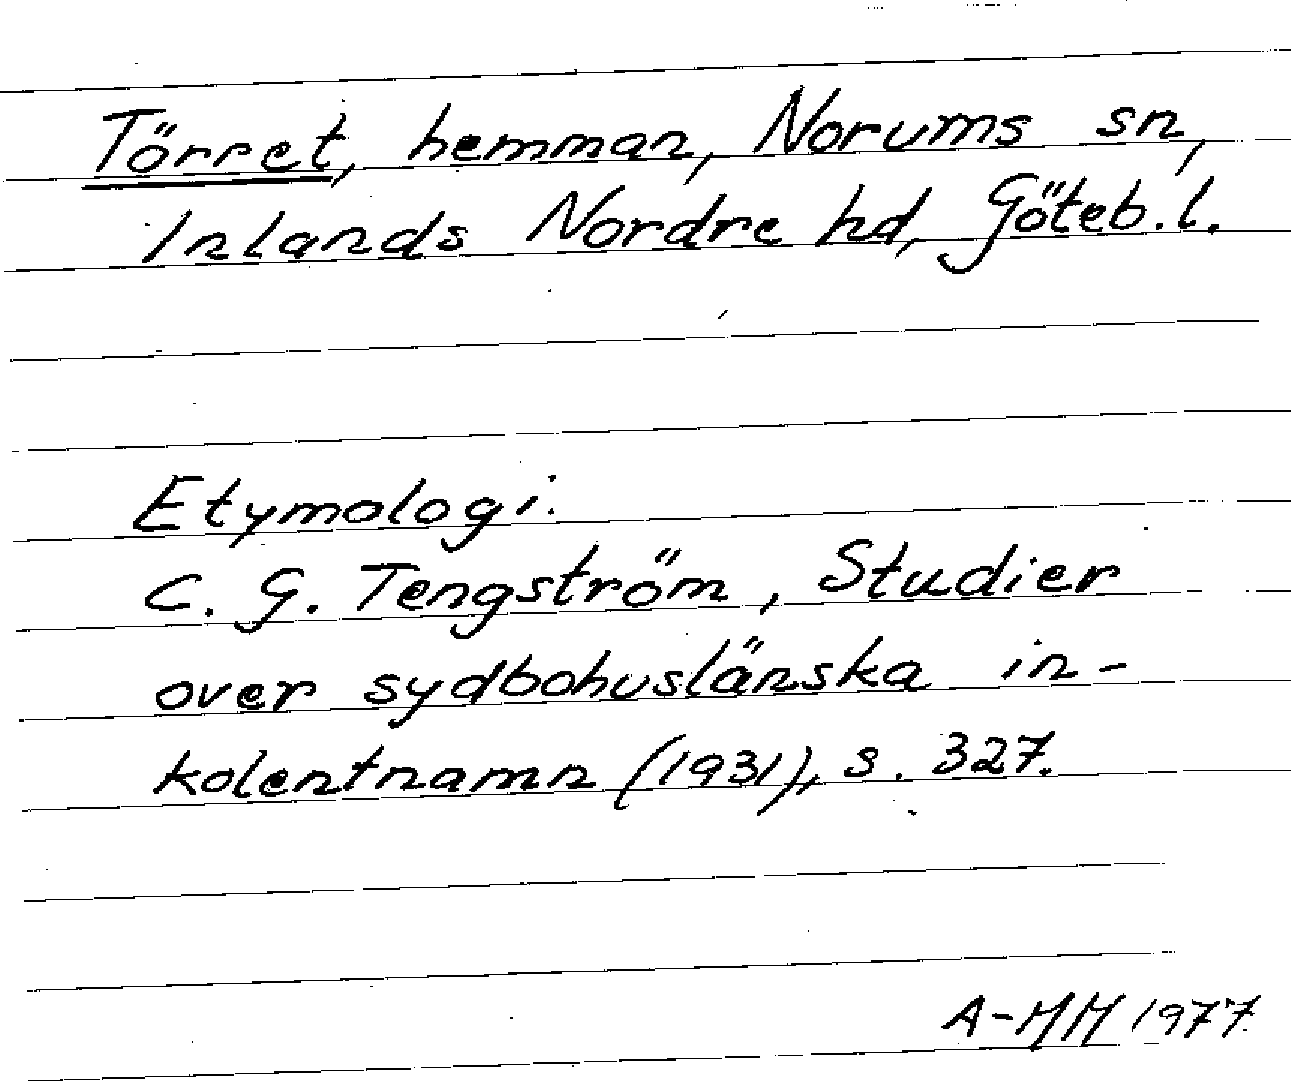 Törret, hemman, Norums sn,
Inlands Nordre hd, Göteb.l.
Etymologi:
C. G. Tengström, Studier
över sydbohuslänska in-
kolentnamn (1931), s. 327.
A-MH 1977